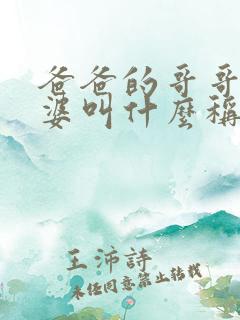 爸爸的哥哥
婆叫什麼稱
王沛詩
未經同意禁止轉載